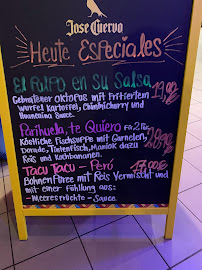 Jose Cuervo
Heute Especiales
El Pulpo en Su Salsa
Gebratener Oktopus mit Frittiertem 19,90
würfel Kartoffel, Chimichurry und
Huancaina Sauce.
Parihuela, te Quiero Für 2 Pers
Köstliche Fischsuppe mit Garnelen,
Dorade, Tintenfisch, Maniok dazu
Reis und Kochbananen.
Tacu Tacu - Perú 17,90€
Bohnen Püree mit Reis Vermischt und
mit einer Fühllung aus:
- Meeresfrüchte - Sauce.